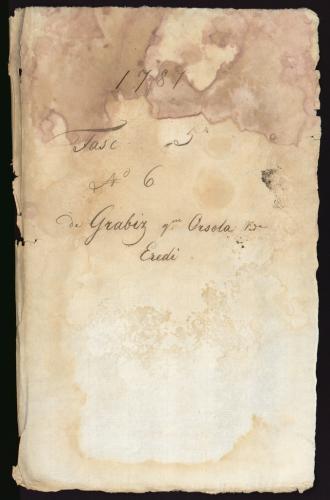 1781
Fasc 5
No 6
de Grabiz qm Orsola
Eredi